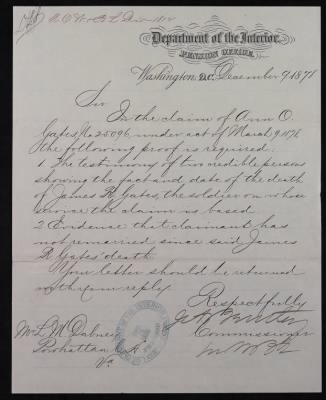 Department of the Interior,
PENSION OFFICE,
Washington, D.C. December 9, 1878
Sir
In the claim of Ann O.
Gates, No 25096, under act of March 9, 1878
the following proof is required.
1. The testimony of two credible persons
showing the fact and date of the death
of James R. Gates, the soldier on whose
service the claim is based.
2 Evidence that claimant has
not remarried since said James
R. Gates' death.
Your letter should be returned
with your reply.
Respectfully
Commissioner
Mr. L. M. Dabney
Powhattan C.H.
Va